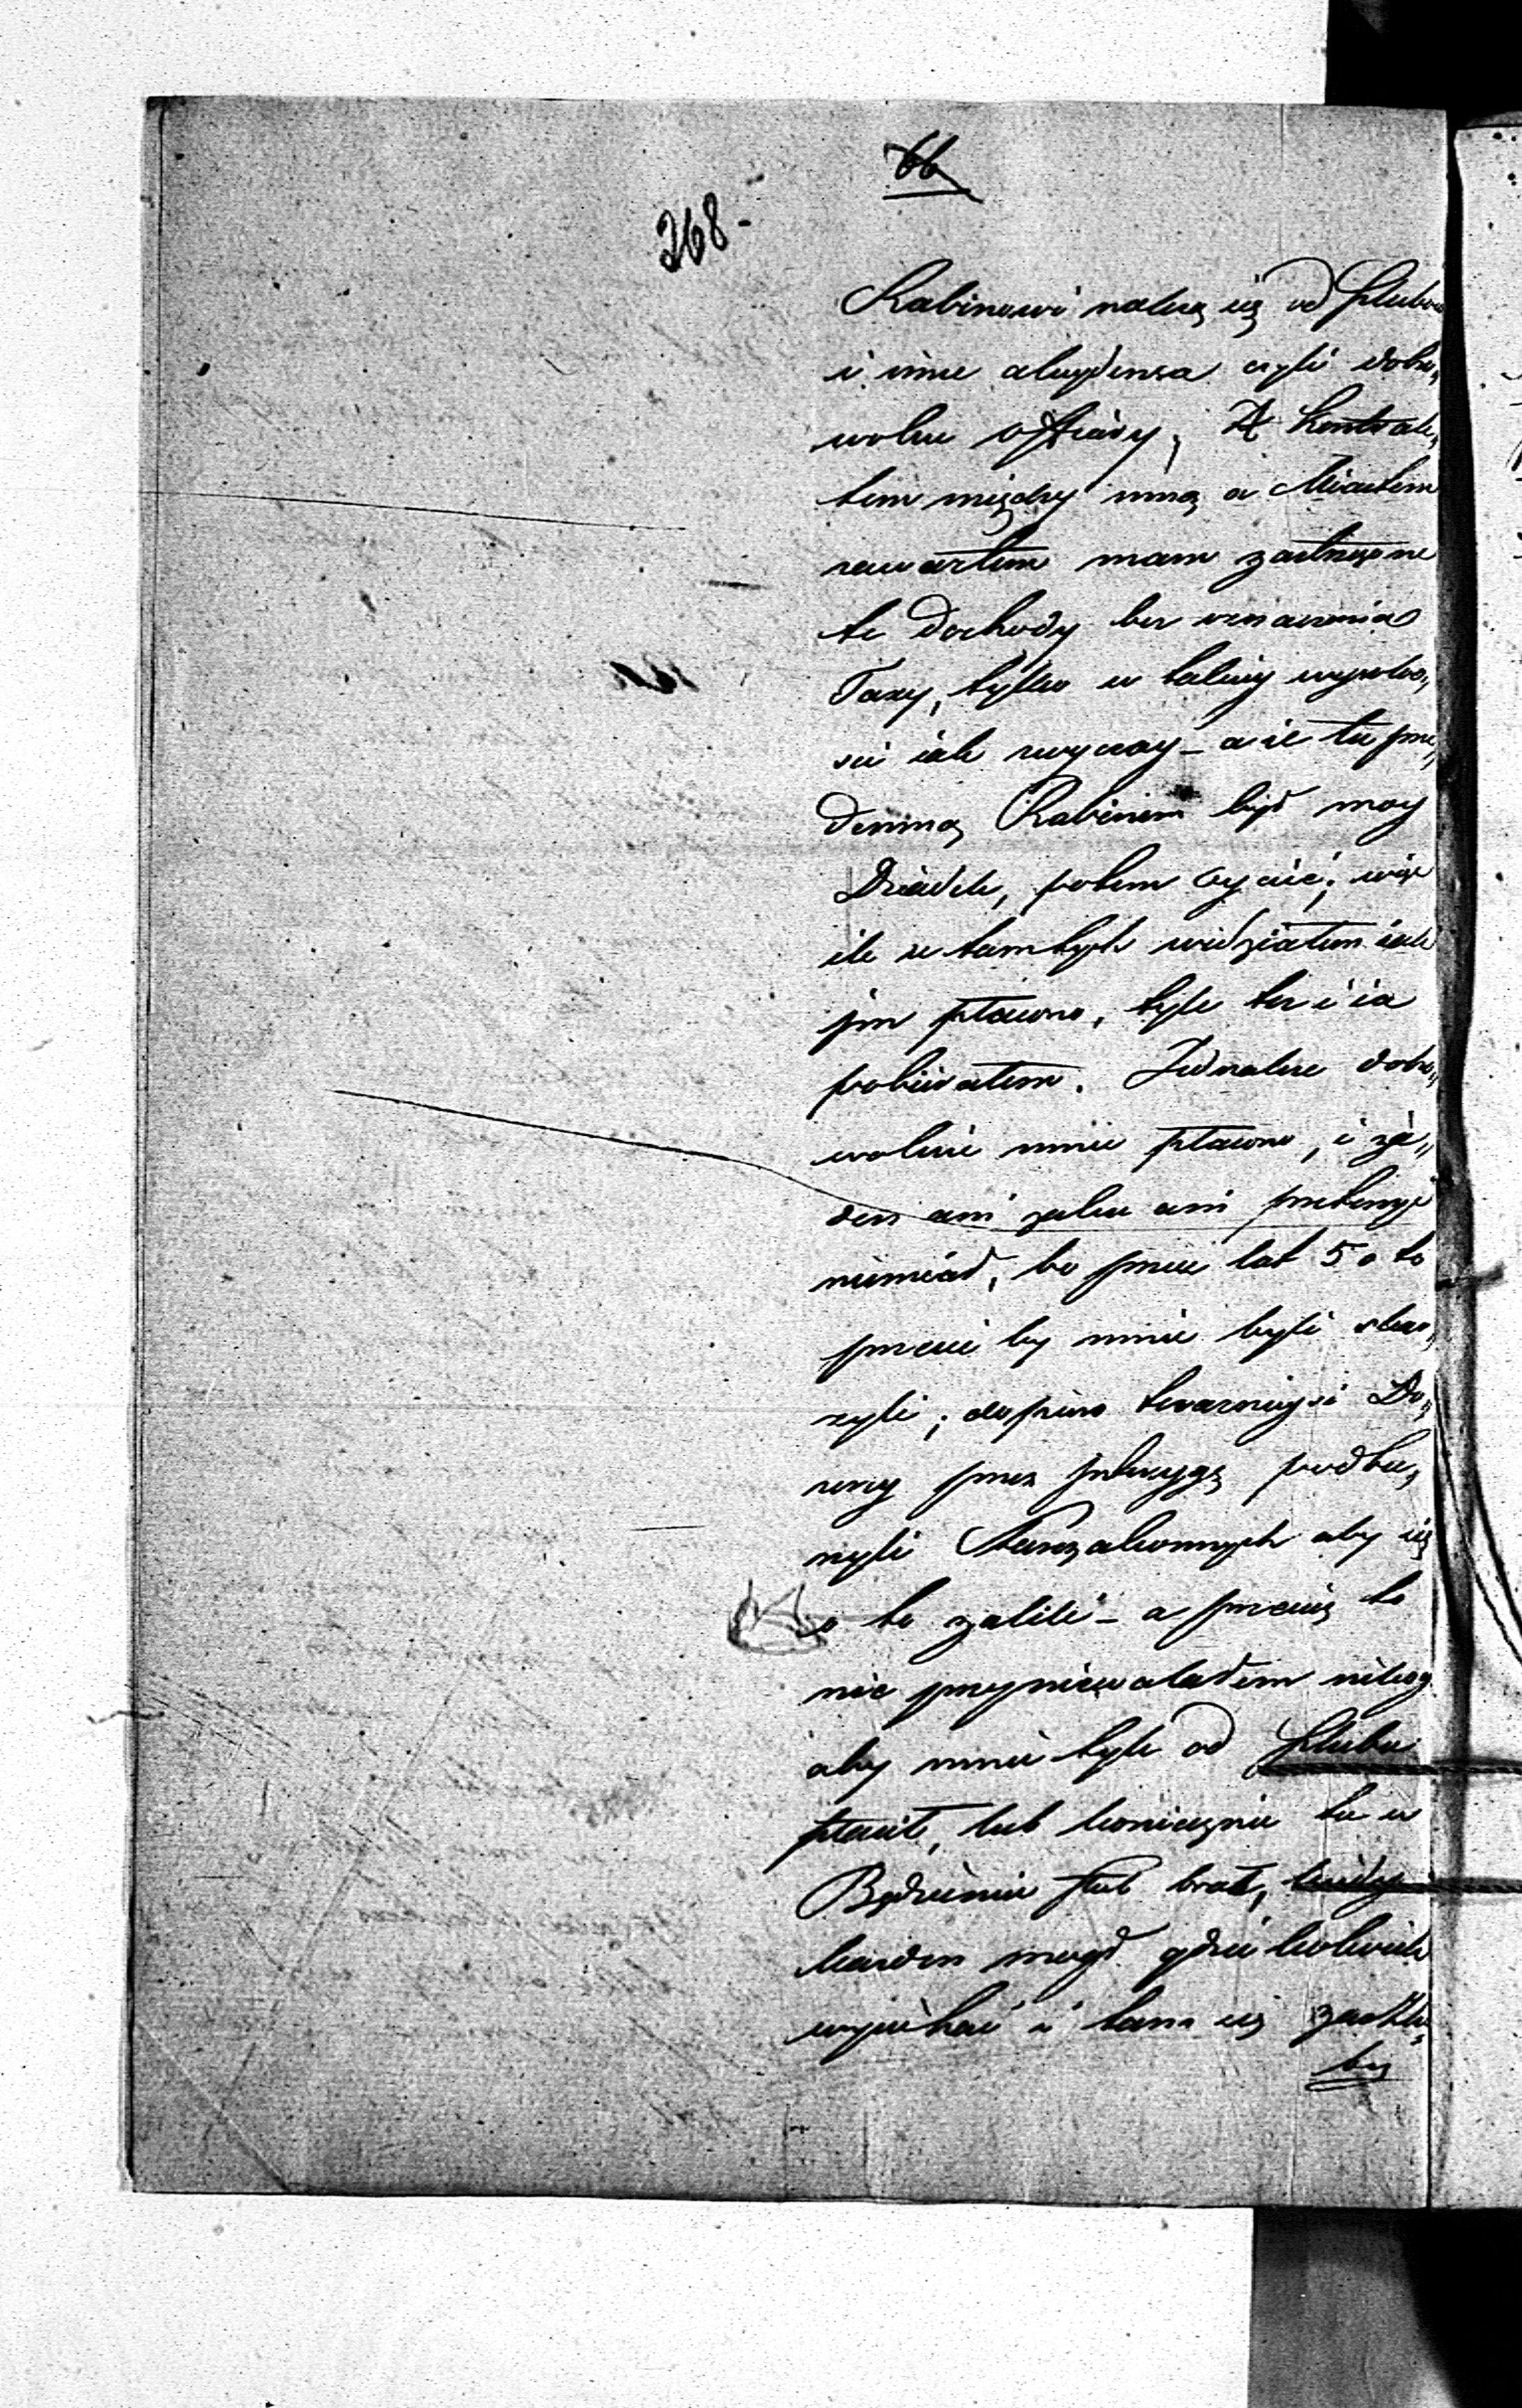 66
268-
Rabinowi należą się od ślubów
i inne akcydensa czyli dobro„
wolne offiary, Z Kontrak„
tem między mną a Miastem
zawartem mam zastrzeżone
te dochody bez oznaczenia
Taxy, tylko w takiey wysoko„
ści iak zwyczay – a że tu prze„
demną Rabinem był moy
Dziadek, potem Oyciec; więc
ile za tamtych widziałem iak
im płacono, tyle też i ia
pobierałem. Jednakże dobro„
wolnie mnie płacono, i ża„
den ani żalu ani pretensyi
niemiał, bo przez lat 50 to
przecie by mnie byli skar„
żyli; dopiero teraznieysi Do„
zorcy przez intrygę podbu„
rzyli Poszkodowanych aby się
o to żalili – a przecię to
nie przyniewalałem nikogo
aby mnie tyle od ślubu
płacił, lub koniecznie tu w
Będzinie ślub brał,
każden mógł gdzie kolwiek
wyiechać i tam się zaślu„
bić